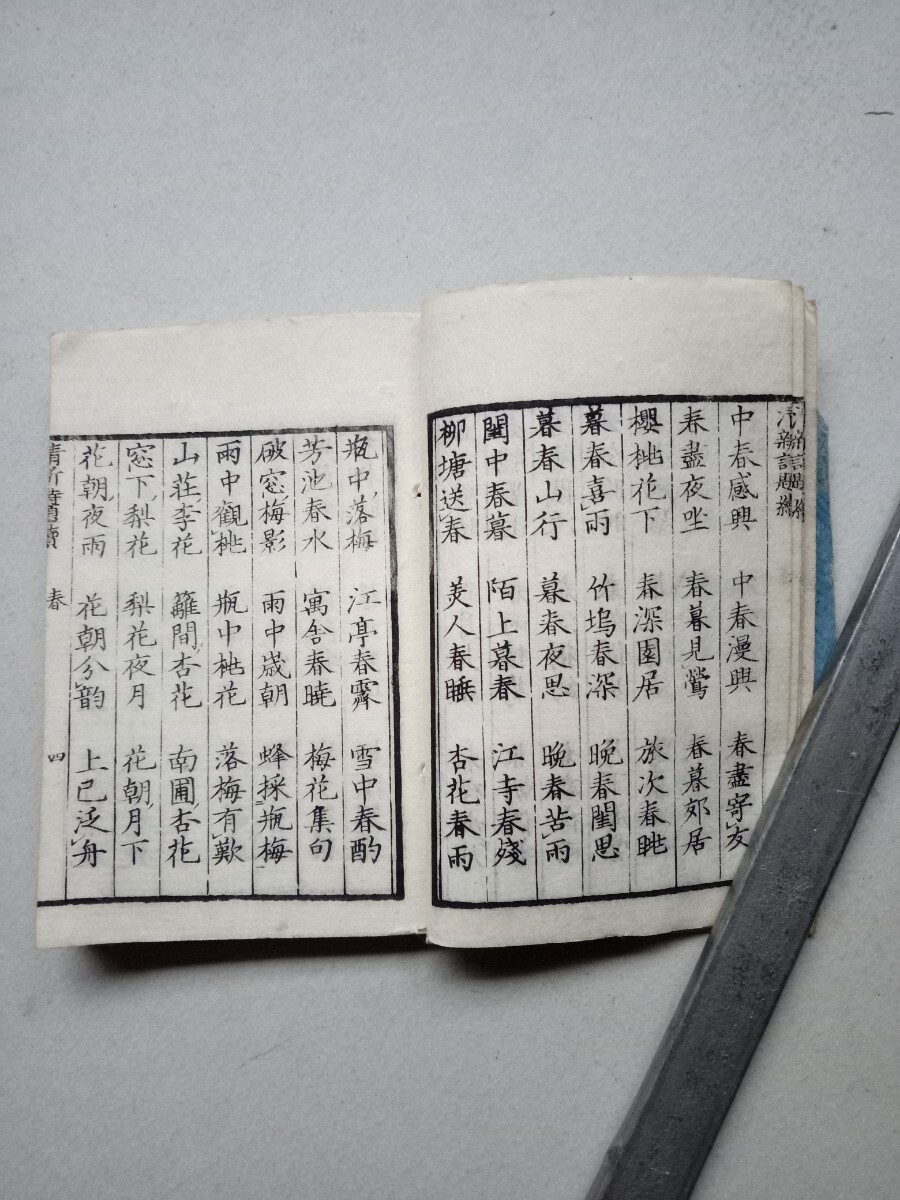 中春感興 中春漫興 春盡寄友
春盡夜坐 春暮見鶯 春暮郊居
櫻桃花下 春深園居 旅次春眺
暮春喜雨 竹塢春深 晩春閨思
暮春山行 暮春夜思 晩春苦雨
閨中春暮 陌上暮春 江寺春殘
柳塘送春 美人春睡 杏花春雨
瓶中落梅 江亭春霽 雪中春酌
芳池春水 寓舎春曉 梅花集句
破窓梅影 雨中歳朝 蜂採瓶梅
雨中觀桃 瓶中桃花 落梅有歎
山莊李花 籬間杏花 南圃杏花
窓下梨花 梨花夜月 花朝月下
花朝夜雨 花朝分韵 上巳泛舟
春 四